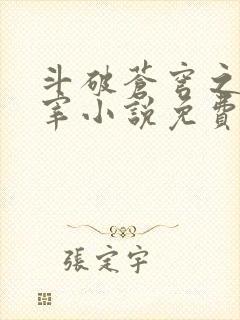 斗破蒼穹之
宰小說免費
張定宇